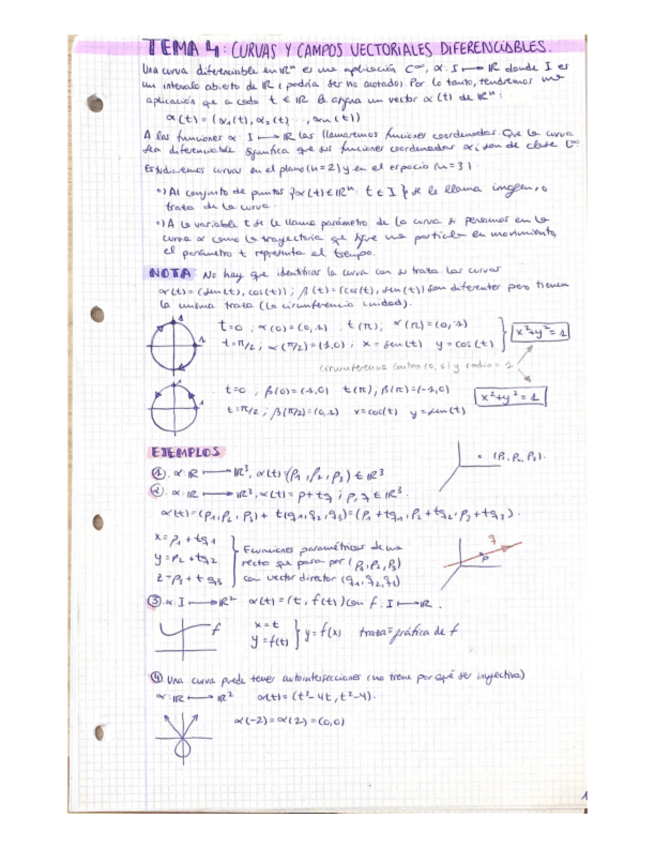 TEMA 4: CURVAS Y CAMPOS VECTORIALES DIFERENCIABLES.
Una curva diferenciable en ℝⁿ es una aplicación C^∞, α: I ⟼ ℝ donde I es
un intervalo abierto de ℝ (podría ser no acotado). Por lo tanto, tendremos una
aplicación que a cada t ∈ ℝ le asigna un vector α(t) de ℝⁿ:
α(t) = (α₁(t), α₂(t) ..., αn(t))
A las funciones α I ⟼ ℝ las llamaremos funciones coordenadas. Que la curva
sea diferenciable significa que sus funciones coordenadas αi son de clase C^∞
Estudiaremos curvas en el plano (n=2) y en el espacio (n=3).
•) Al conjunto de puntos {α(t) ∈ ℝⁿ: t ∈ I} se le llama imagen, o
traza de la curva.
•) A la variable t se le llama parámetro de la curva si pensamos en la
curva α como la trayectoria que sigue una partícula en movimiento,
el parámetro t representa el tiempo.
NOTA: No hay que identificar la curva con su traza. Las curvas
α(t) = (sen(t), cos(t)); β(t) = (cos(t), sen(t)) son diferentes pero tienen
la misma traza (la circunferencia unidad).
1
t=0; α(0)=(0,1) t(π); α(π)=(0,-1)
t=π/2; α(π/2)=(1,0); x=sen(t) y=cos(t)
x²+y²=1
1
circunferencia centro (0,0) y radio=1
t=0, β(0)=(1,0) t(π), β(π)=(-1,0)
t=π/2; β(π/2)=(0,1) x=cos(t) y=sen(t)
x²+y²=1
1
EJEMPLOS
• (P₁, P₂, P₃).
① α: ℝ ⟼ ℝ³, α(t)=(P₁, P₂, P₃) ∈ ℝ³
② α: ℝ ⟼ ℝ³, α(t)=p+tq; p, q ∈ ℝ³.
α(t)=(P₁, P₂, P₃)+t(q₁, q₂, q₃)=(P₁+tq₁, P₂+tq₂, P₃+tq₃).
x=P₁+tq₁
y=P₂+tq₂
z=P₃+tq₃
Ecuaciones paramétricas de una
recta que pasa por (P₁, P₂, P₃)
con vector director (q₁, q₂, q₃)
q
P
③ α: I ⟼ ℝ² α(t)=(t, f(t)) con f: I ⟼ ℝ.
f
x=t
y=f(t)
y=f(x) traza=gráfica de f
④ Una curva puede tener autointersecciones (no tiene por qué ser inyectiva)
α: ℝ ⟼ ℝ² α(t)=(t³-4t, t²-4).
α(-2)=α(2)=(0,0)
1